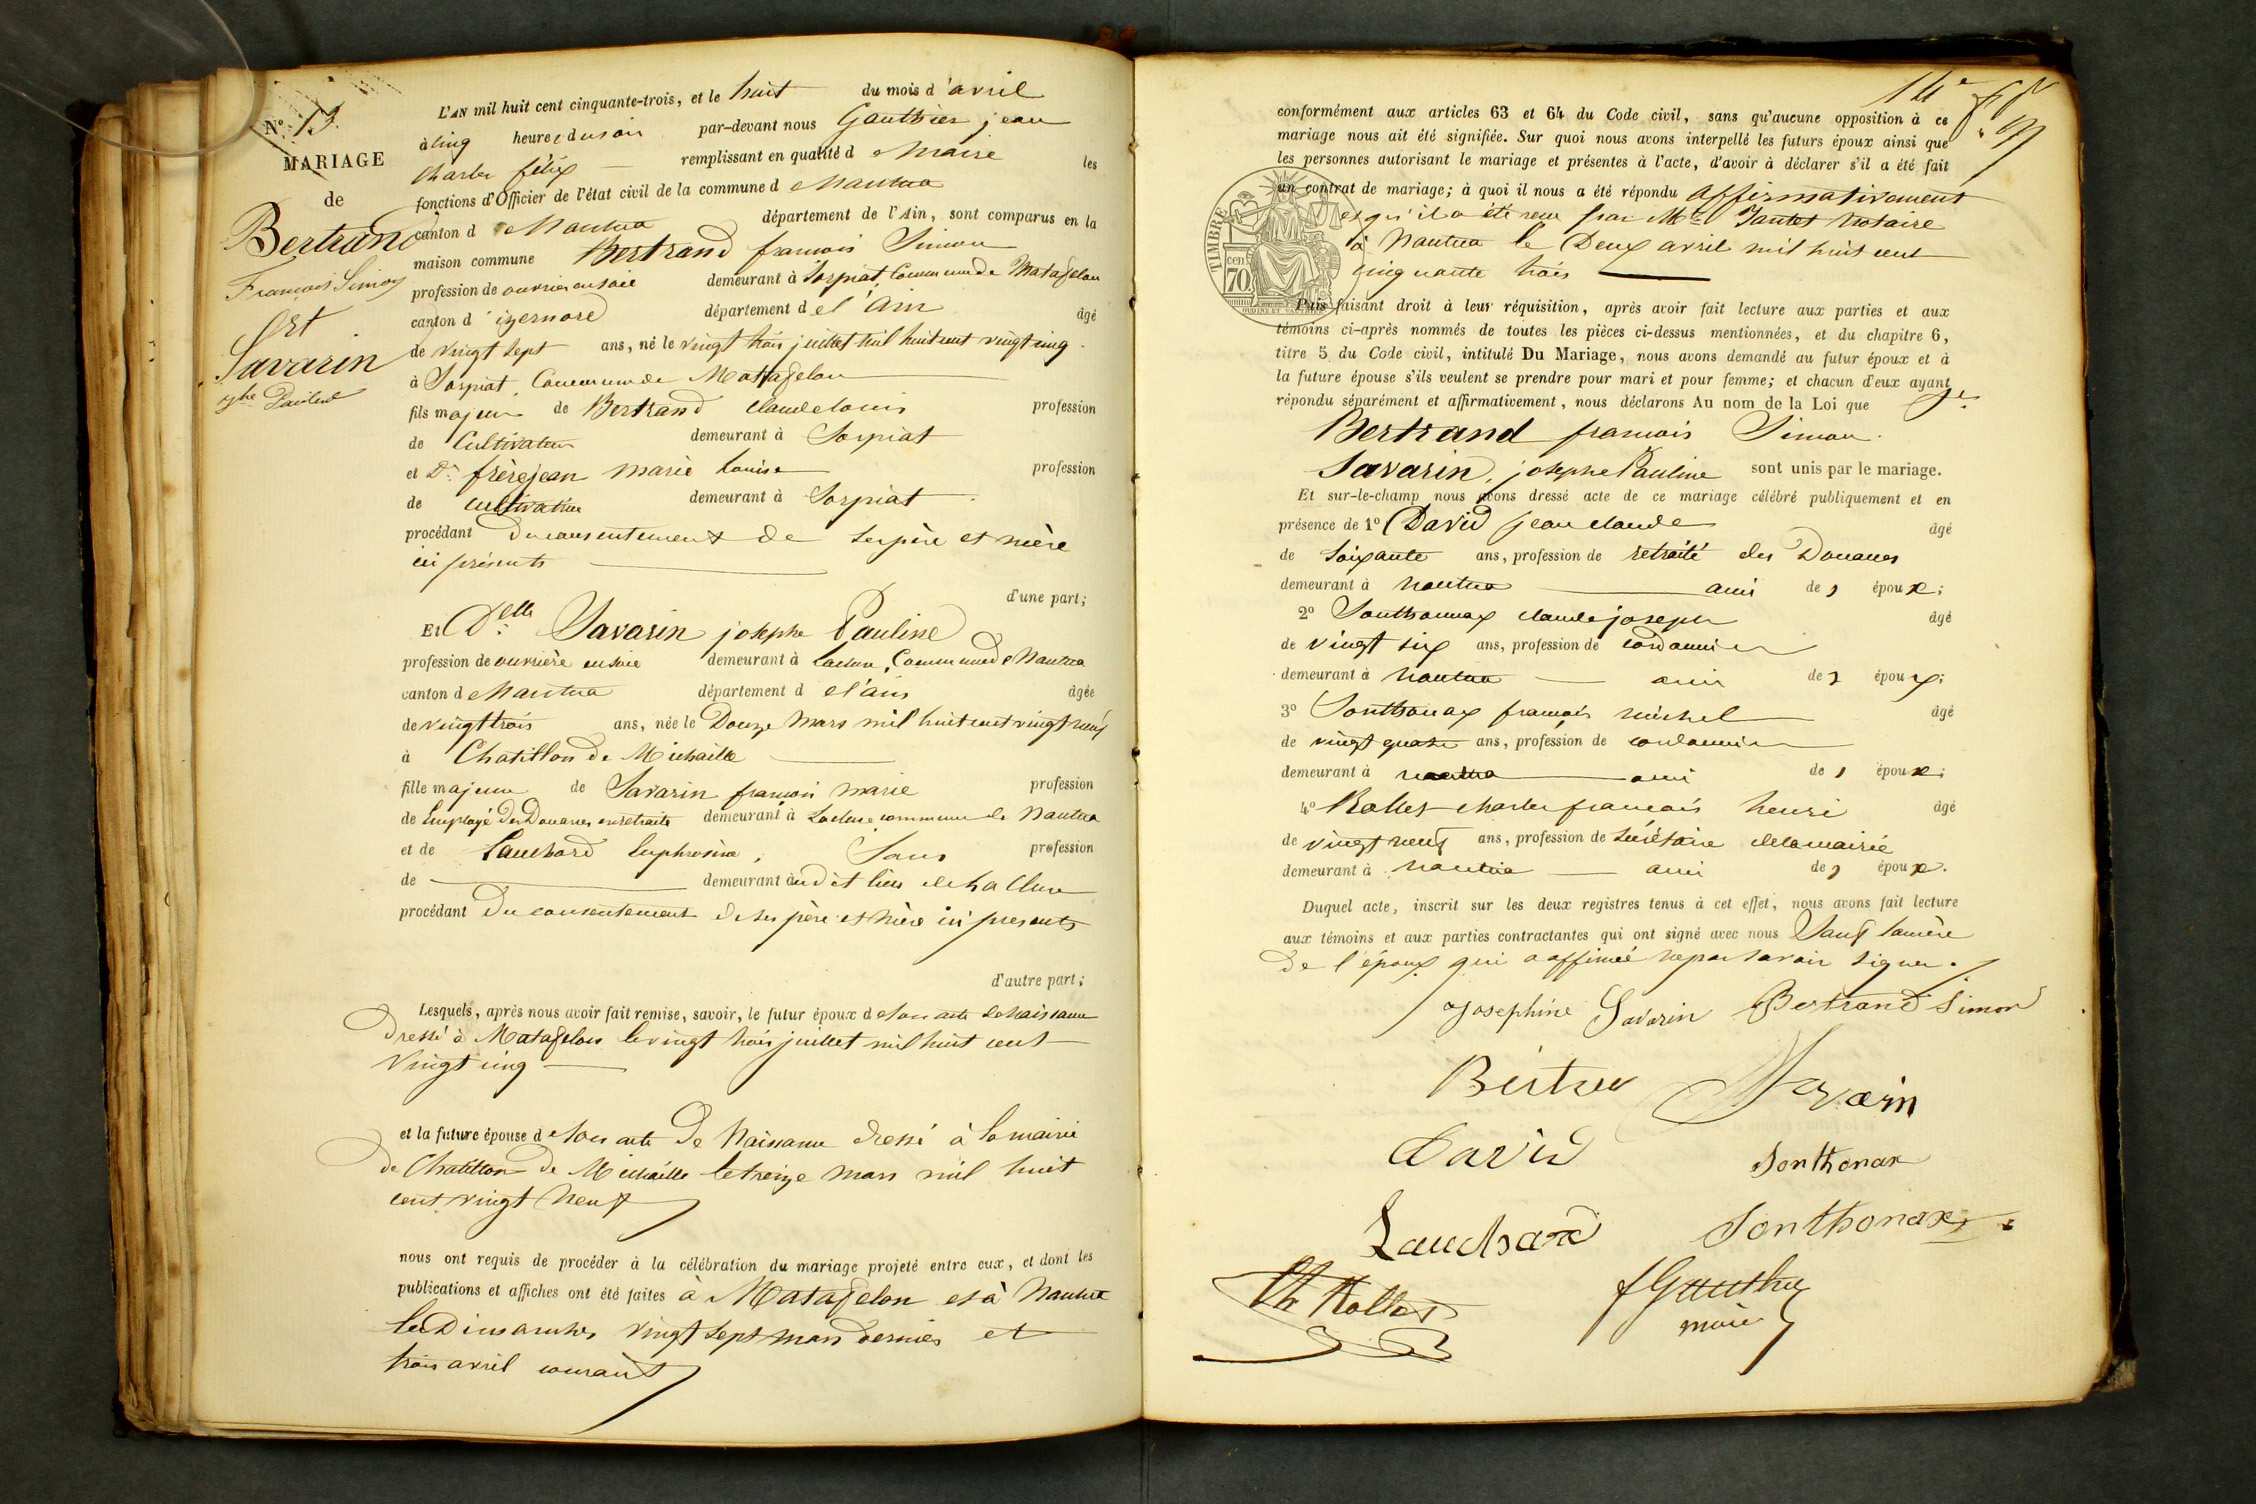 N° 13.
MARIAGE
de
Bertrand
François Simon
Et
Savarin
jphe Pauline
L'AN mil huit cent cinquante-trois, et le huit du mois d'avril
à cinq heures du soir par-devant nous Gauthier jean
charles félix remplissant en qualité de Maire les
fonctions d'Officier de l'état civil de la commune de Nantua
canton de Nantua département de l'Ain, sont comparus en la
maison commune Bertrand francois Simon
profession de ouvrier en soie demeurant à Sorpiat, Commune de Matafelon
canton d'izernore département de l'Ain âgé
de vingt sept ans, né le vingt trois juillet mil huit cent vingt cinq
à Sorpiat, Commune de Mattafelon
fils majeur de Bertrand Claude Louis profession
de Cultivateur demeurant à Sorpiat
et De frèrejean marie Louise profession
de cultivatrice demeurant à Sorpiat
procédant du consentement de ses père et mère
ici présents
d'une part;
Et Delle Savarin josephe Pauline
profession de ouvrière en soie demeurant à Lacluse, Commune de Nantua
canton de Nantua département de l'ain âgée
de vingt trois ans, née le Douze Mars mil huit cent vingt neuf
à Chatillon de Michaille
fille majeure de Savarin francois marie profession
de Employé des Douanes en retraite demeurant à Lacluse commune de Nantua
et de Lauchard Euphrosine, Sans profession
de demeurant audit lieu de La Cluse
procédant du consentement de ses père et mère ici presents
d'autre part;
Lesquels, après nous avoir fait remise, savoir, le futur époux de son acte de naissance
dressé à Matafelon le vingt trois juillet mil huit cent
Vingt cinq
et la future épouse de son acte de Naissance dressé à la mairie
de Chatillon de Michaille le treize mars mil huit
cent vingt neuf
nous ont requis de procéder à la célébration du mariage projeté entre eux, et dont les
publications et affiches ont été faites à Matafelon et à Nantua
les Dimanches vingt sept mars dernier et
trois avril courant
14e
conformément aux articles 63 et 64 du Code civil, sans qu'aucune opposition à ce
mariage nous ait été signifiée. Sur quoi nous avons interpellé les futurs époux ainsi que
les personnes autorisant le mariage et présentes à l'acte, d'avoir à déclarer s'il a été fait
un contrat de mariage; à quoi il nous a été répondu affirmativement
et qu'il a été reçu par Me Jantet Notaire
à Nantua le Deux avril mil huit cent
cinquante trois
TIMBRE
cen
70
Puis faisant droit à leur réquisition, après avoir fait lecture aux parties et aux
témoins ci-après nommés de toutes les pièces ci-dessus mentionnées, et du chapitre 6,
titre 5 du Code civil, intitulé Du Mariage, nous avons demandé au futur époux et à
la future épouse s'ils veulent se prendre pour mari et pour femme; et chacun d'eux ayant
répondu séparément et affirmativement, nous déclarons Au nom de la Loi que
Bertrand francois Simon
Savarin, josephe Pauline sont unis par le mariage.
Et sur-le-champ nous avons dressé acte de ce mariage célébré publiquement et en
présence de 1° David jean claude âgé
de soixante ans, profession de retraité des Douanes
demeurant à Nantua ami des époux;
2° Sonthonnax claude joseph âgé
de vingt six ans, profession de cordonnier
demeurant à Nantua ami des époux;
3° Sonthonax françois michel âgé
de vingt quatre ans, profession de cordonnier
demeurant à nantua ami des époux;
4° Rollet charles françois henri âgé
de vingt neuf ans, profession de secrétaire de la mairie
demeurant à nantua ami des époux.
Duquel acte, inscrit sur les deux registres tenus à cet effet, nous avons fait lecture
aux témoins et aux parties contractantes qui ont signé avec nous Sauf la mère
de l'époux qui a affirmé ne pas savoir signer.
Josephine Savarin Bertrand Simon
Savarin
David Sonthonax
Lauchard Sonthonax
Ch Rollet f Gauthier
maire